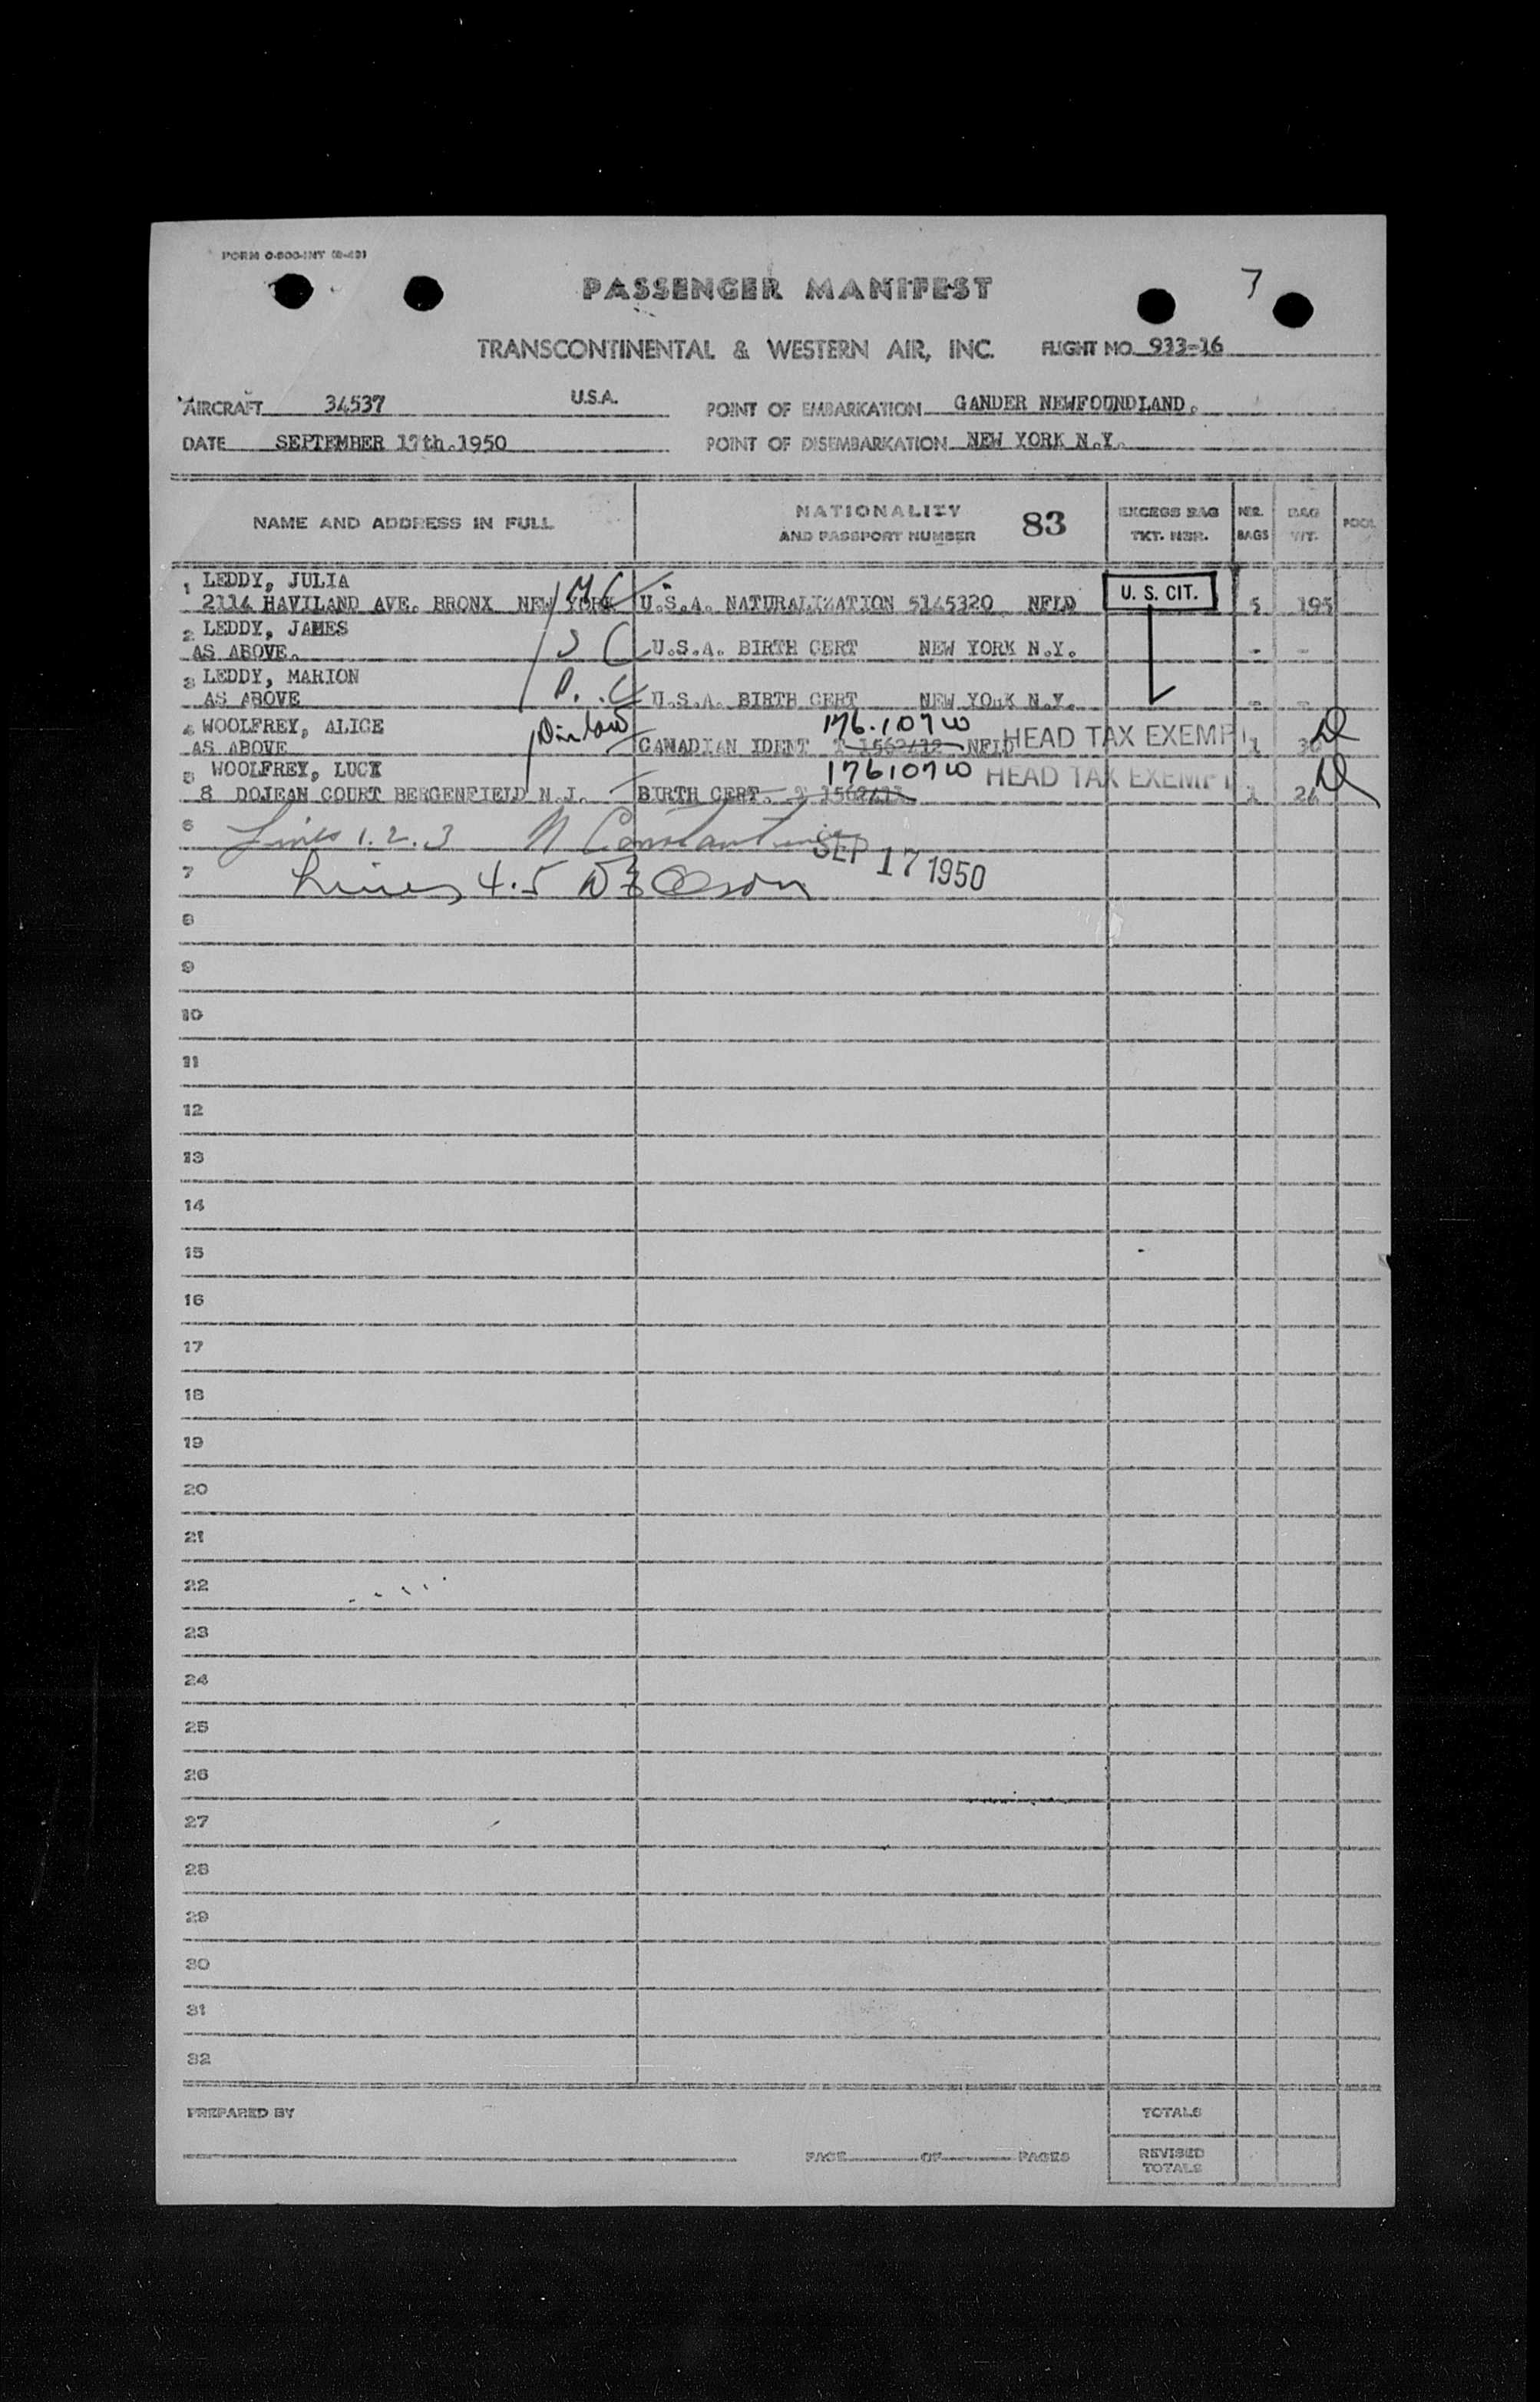 FORM O-800-INT (8-49)
PASSENGER MANIFEST 7
TRANSCONTINENTAL & WESTERN AIR, INC. FLIGHT NO. 933-16
AIRCRAFT 34537 U.S.A. POINT OF EMBARKATION GANDER NEWFOUNDLAND.
DATE SEPTEMBER 17th.1950 POINT OF DISEMBARKATION NEW YORK N.Y.
NAME AND ADDRESS IN FULL NATIONALITY AND PASSPORT NUMBER 83 EXCESS BAG TKT. NBR. NBR. BAGS BAG WT. POOL
1 LEDDY, JULIA
2114 HAVILAND AVE. BRONX NEW YORK U.S.A. NATURALIZATION 5145320 NFLD U. S. CIT. 5 195
2 LEDDY, JAMES
AS ABOVE. U.S.A. BIRTH CERT NEW YORK N.Y. - -
3 LEDDY, MARION
AS ABOVE U.S.A. BIRTH CERT NEW YORK N.Y. - -
4 WOOLFREY, ALICE 176.107W
AS ABOVE CANADIAN IDENT NFLD HEAD TAX EXEMPT 1 30
5 WOOLFREY, LUCY 176107W
8 DOJEAN COURT BERGENFIELD N.J. BIRTH CERT. HEAD TAX EXEMPT 1 26
6 Lines 1.2.3 N Constantine
SEP 17 1950
7 Lines 4.5
8
9
10
11
12
13
14
15
16
17
18
19
20
21
22
23
24
25
26
27
28
29
30
31
32
PREPARED BY TOTALS
PAGE OF PAGES REVISED TOTALS